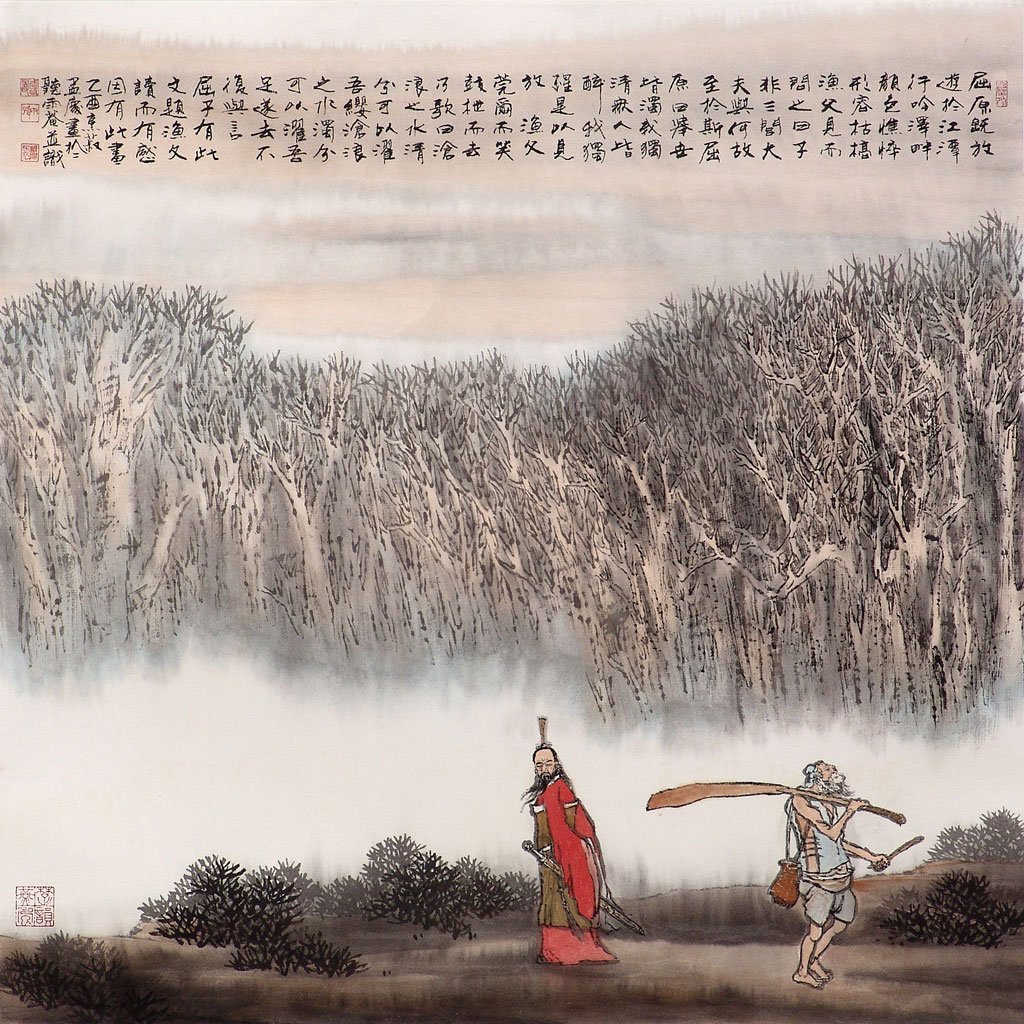 屈原既放
遊於江潭
行吟澤畔
顏色憔悴
形容枯槁
漁父見而
問之曰子
非三閭大
夫與何故
至於斯屈
原曰舉世
皆濁我獨
清衆人皆
醉我獨
醒是以見
放 漁父
莞爾而笑
鼓枻而去
乃歌曰滄
浪之水清
兮可以濯
吾纓滄浪
之水濁兮
可以濯吾
足遂去不
復與言
屈子有此
文題漁父
讀而有感
因有此畫
乙酉年
畫於
聽雨庵並識